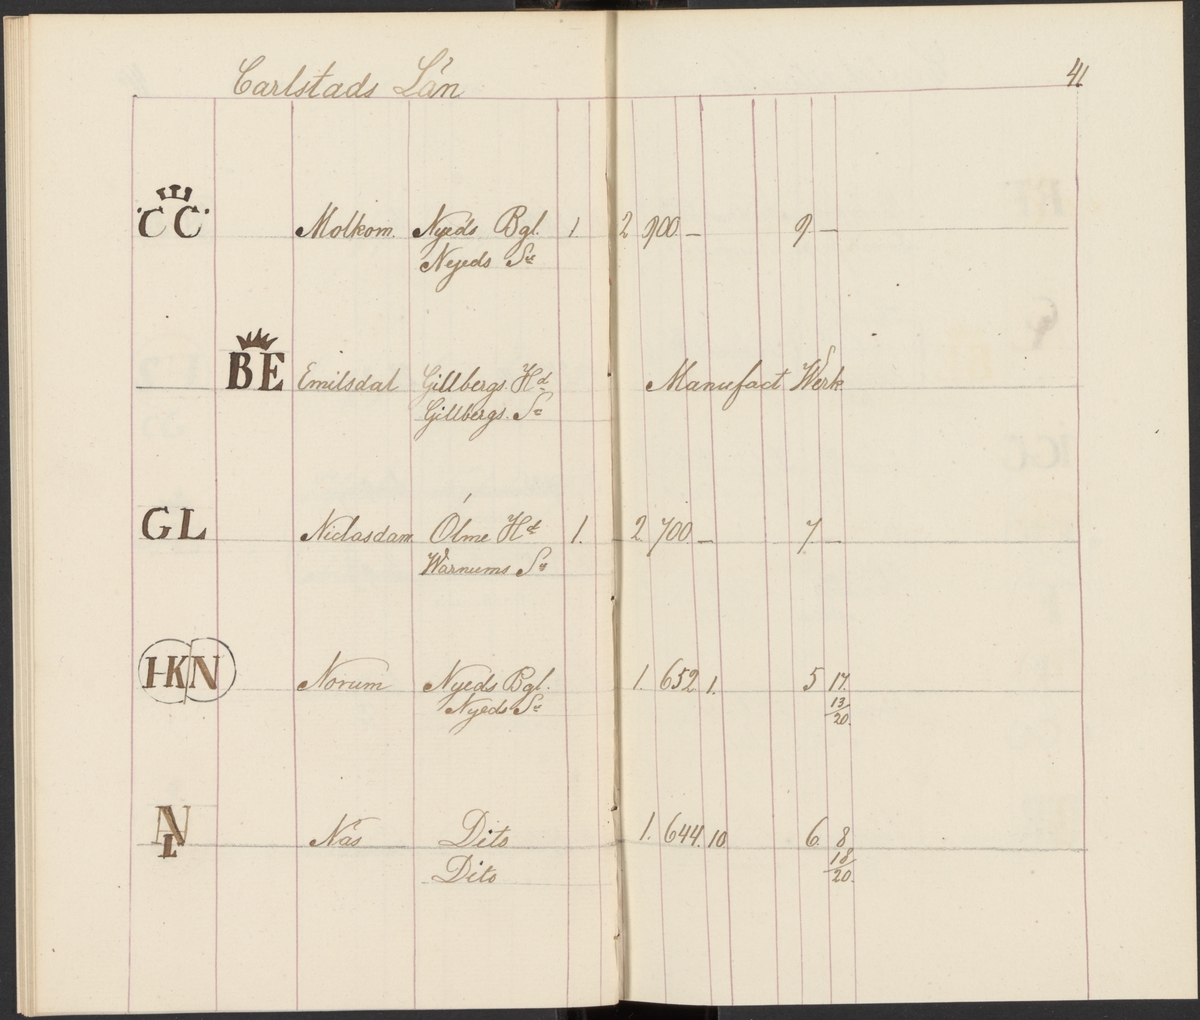 Carlstads Län 41
C C Molkom. Nyeds Bgl. 1. 2 900 — 9 —
Nyeds Sn
BE Emilsdal Gillbergs Hd Manufact Werk
Gillbergs. Sn
GL Niclasdam Ölme Hd 1. 2 700 — 7 —
Warnums Sn
HKN Norum Nyeds Bgl. 1. 652 1. 5 17.
Nyeds Sn 13/20.
NL Näs Dito 1. 644. 10. 6. 8
Dito 18/20.